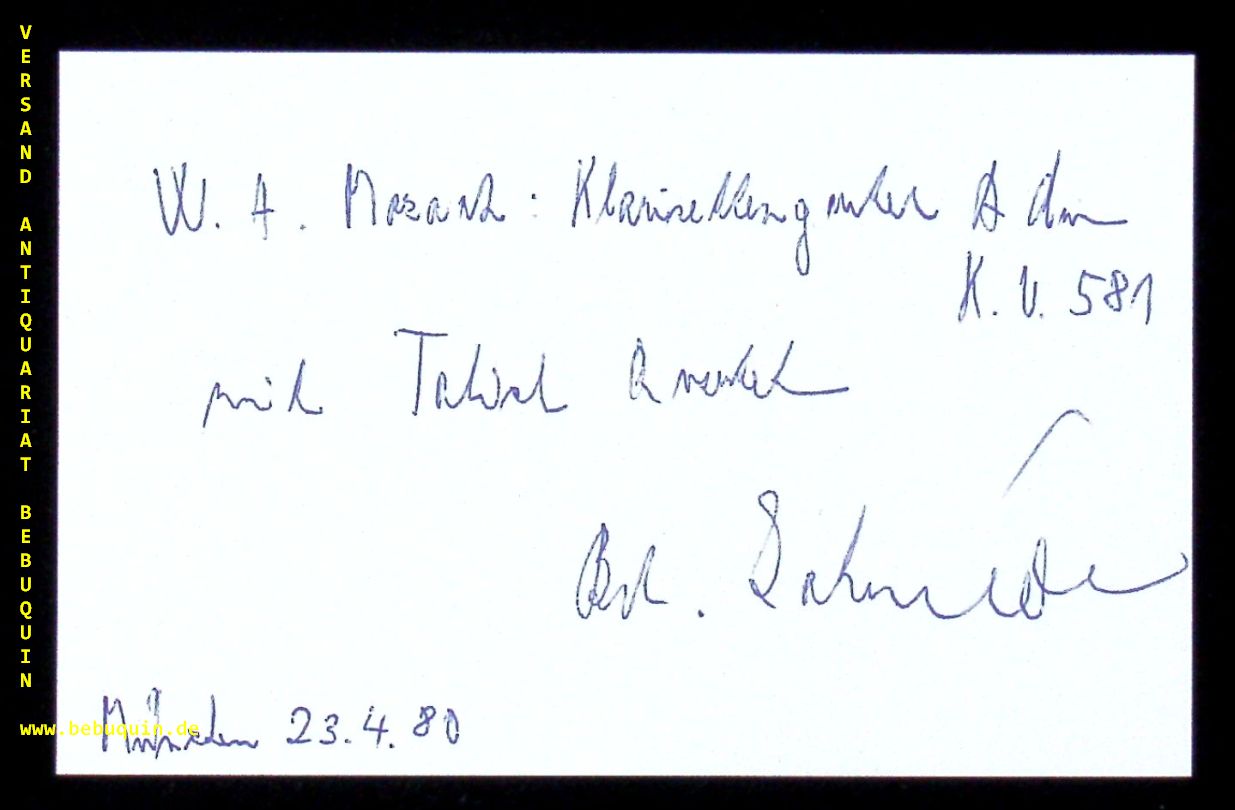 VERSAND ANTIQUARIAT BEBUQUIN
W. A. Mozart: Klarinettenquintett A dur
K. V. 581
mit Talich Quartett
München 23.4.80
www.bebuquin.de